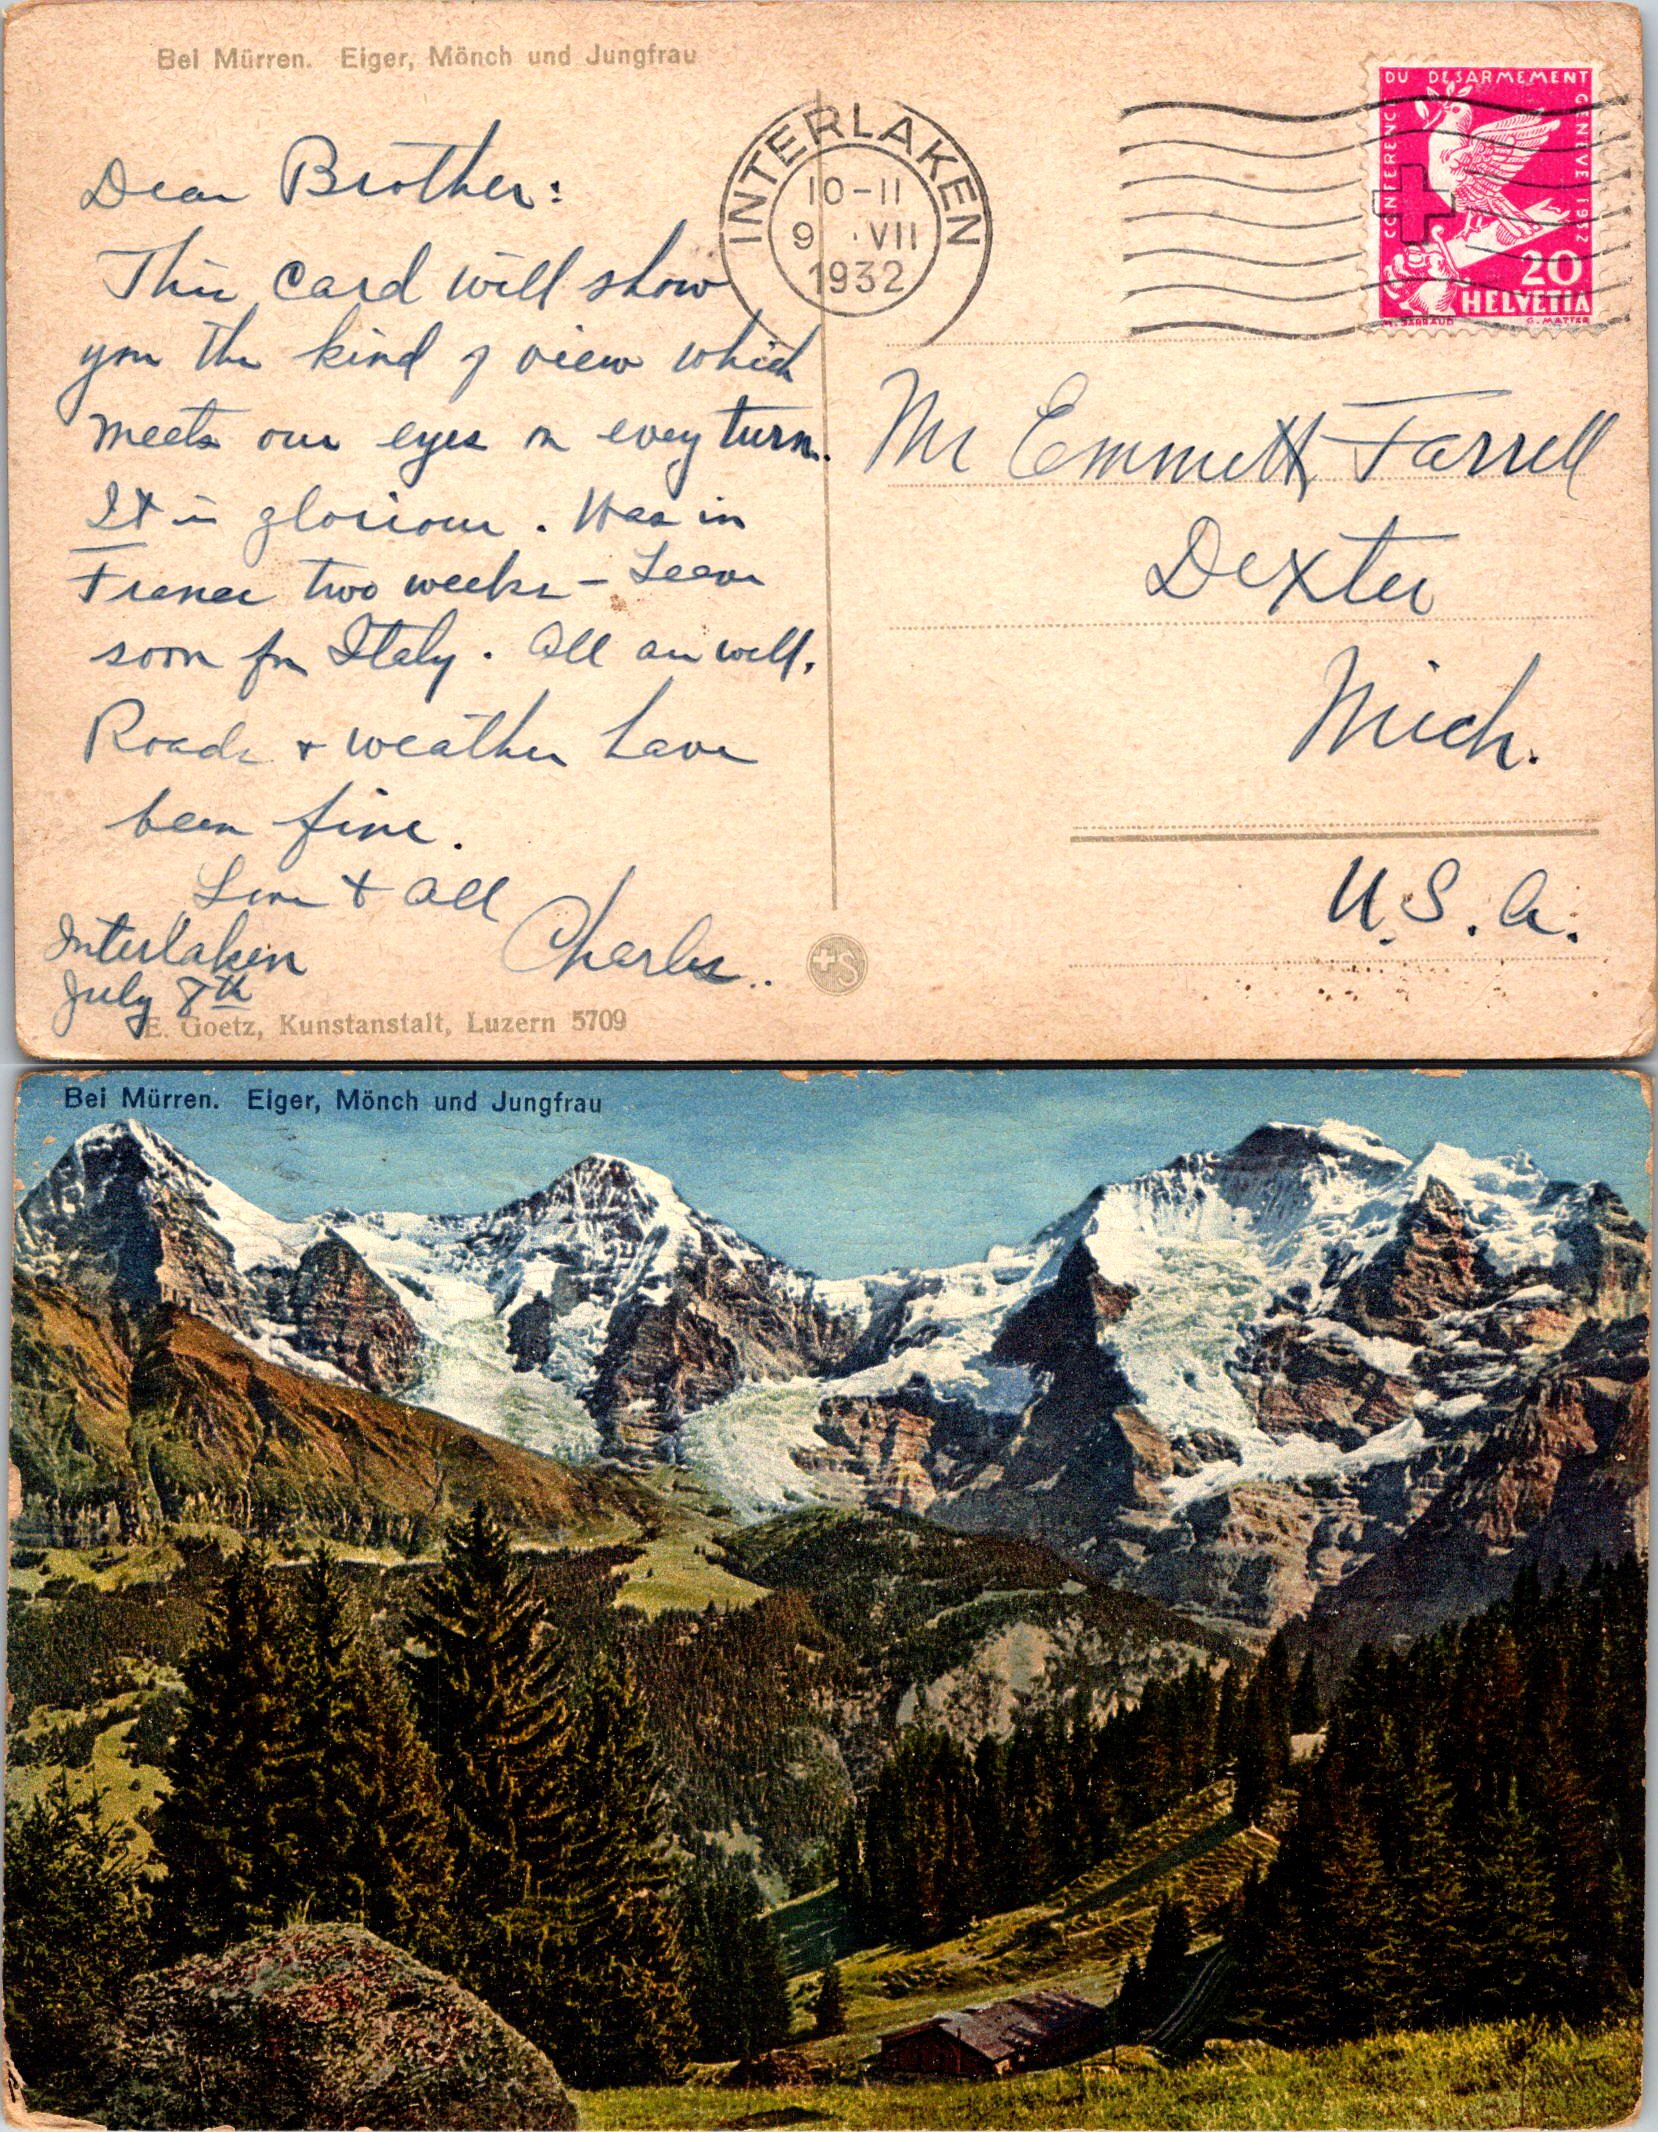 Bei Mürren. Eiger, Mönch und Jungfrau
Dear Brother:
This card will show
you the kind of view which
meets our eyes on every turn.
It is glorious. Was in
France two weeks – Leave
soon for Italy. All are well.
Roads + weather have
been fine.
Love to all
Charles..
Interlaken
July 8th
E. Goetz, Kunstanstalt, Luzern 5709
INTERLAKEN
10-11
9 · VII
1932
CONFERENCE DU DESARMEMENT GENEVE 1932
20
HELVETIA
M. BARRAUD G. MATTER
Mr Emmett Farrell
Dexter
Mich.
U.S.A.
S
Bei Mürren. Eiger, Mönch und Jungfrau